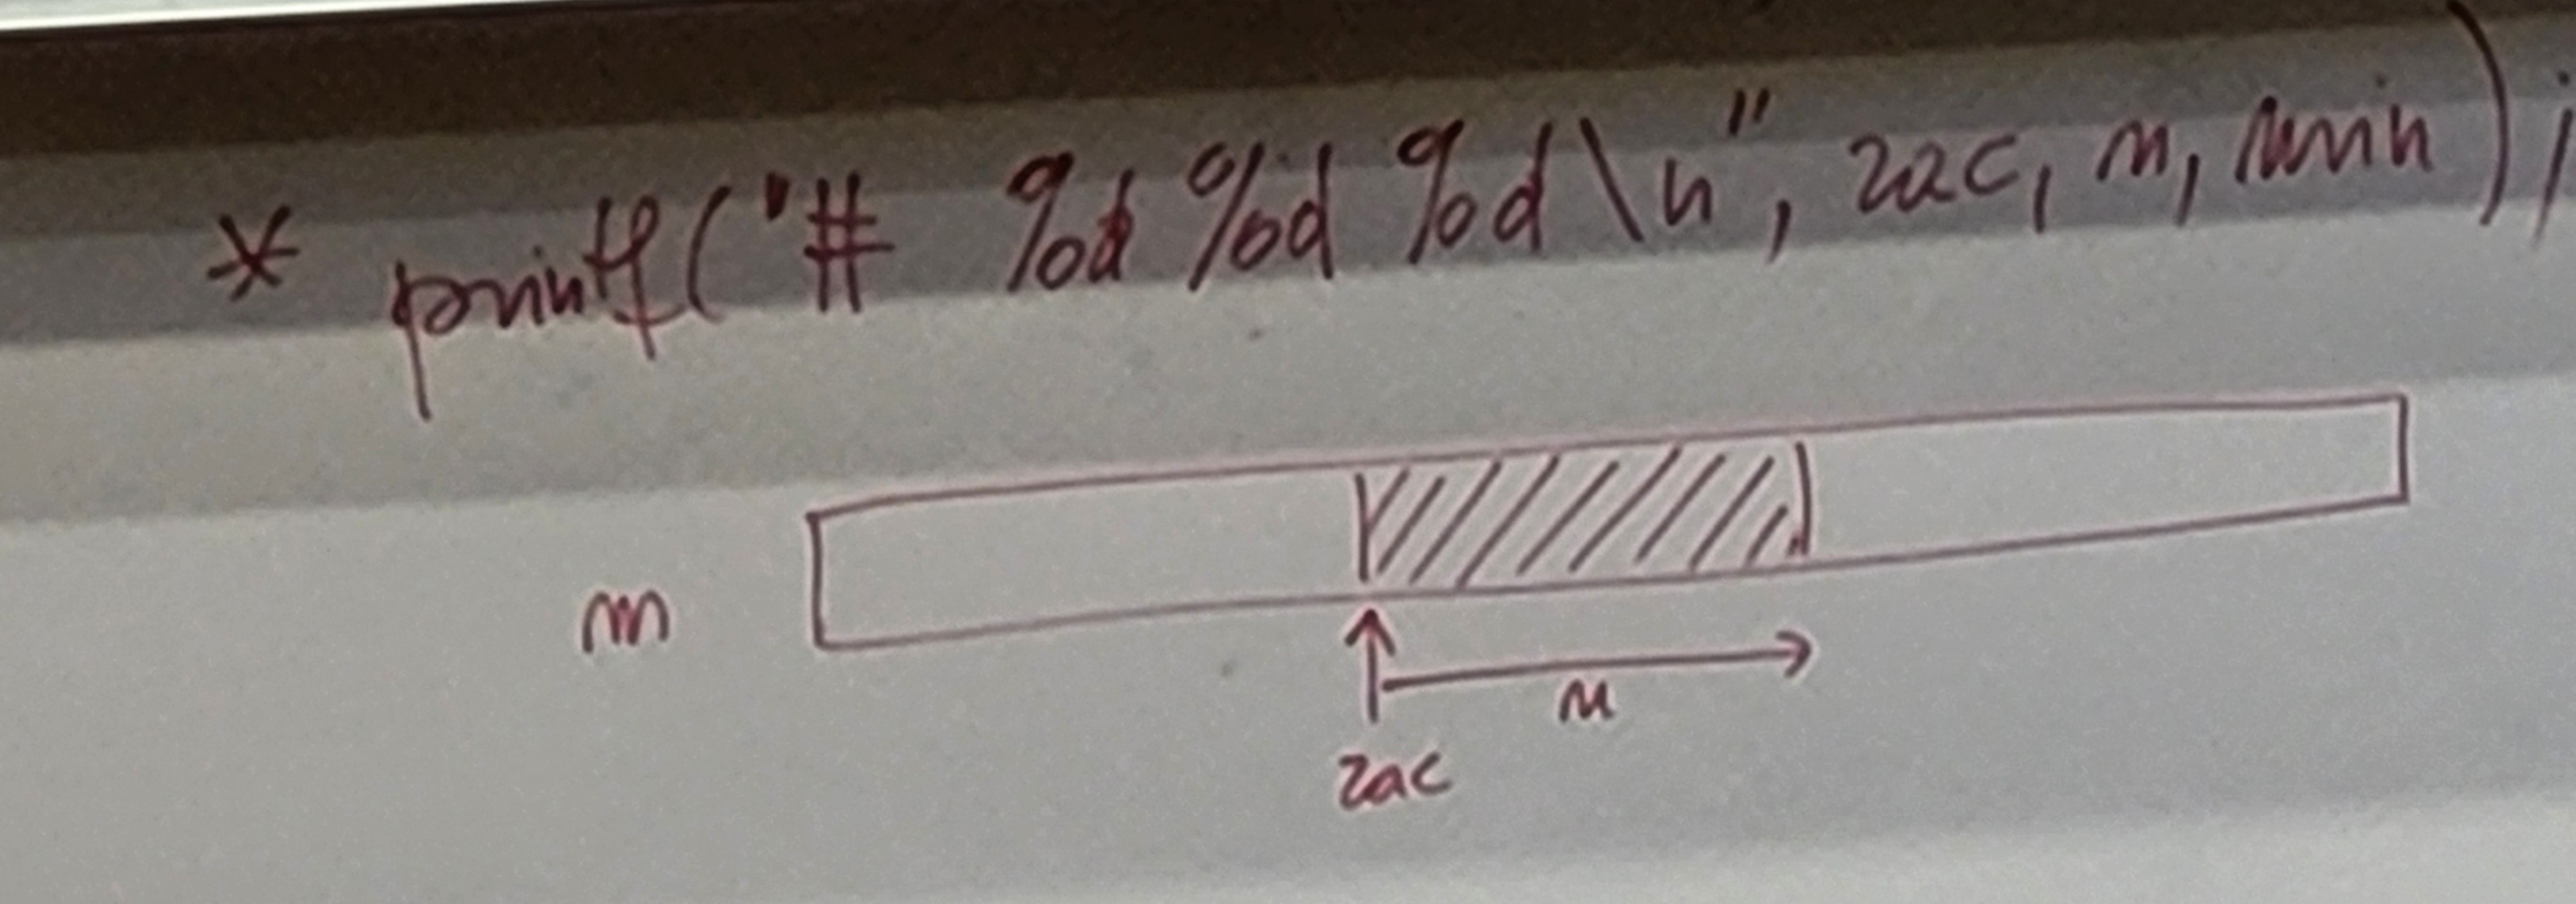 * printf("# %d %d %d\n", zac, n, min);
m
n
zac